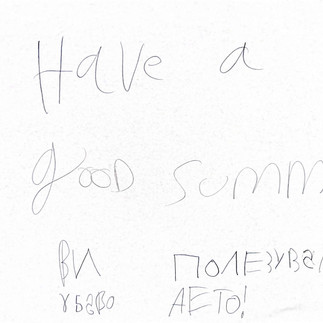 Have a
good summ
ви полезува
убаво лето!